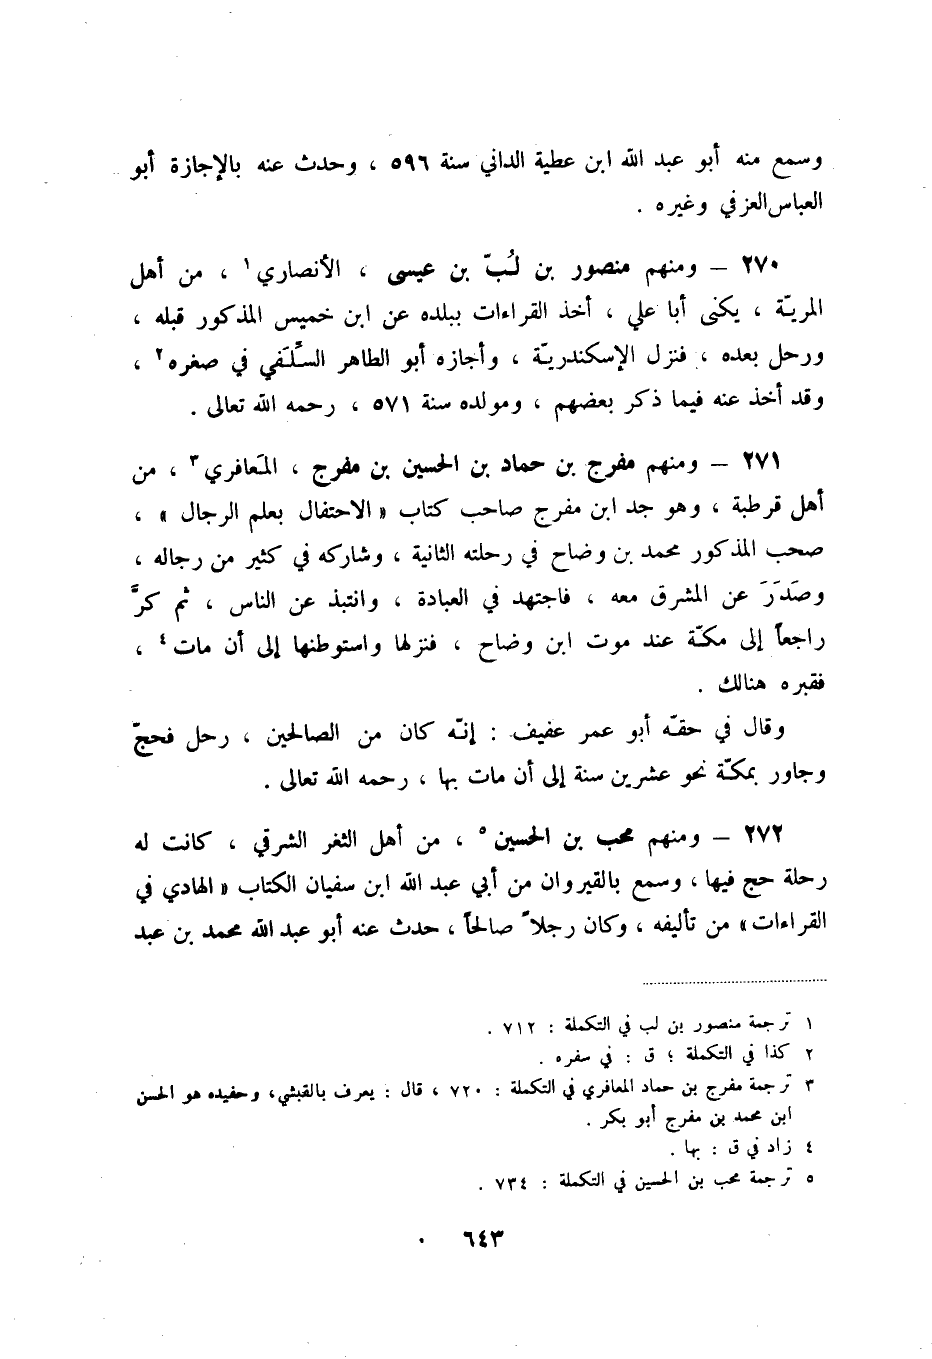 وسمع منه أبو عبد الله ابن عطية الداني سنة ٥٩٦ ، وحدث عنه بالإجازة أبو
العباس العزفي وغيره .
٢٧٠ – ومنهم منصور بن لُبّ بن عيسى ، الأنصاري ١ ، من أهل
المريّة ، يكنى أبا علي ، أخذ القراءات ببلده عن ابن خميس المذكور قبله ،
ورحل بعده ، فنزل الإسكندريّة ، وأجازه أبو الطاهر السِّلَفي في صغره ٢ ،
وقد أخذ عنه فيما ذكر بعضهم ، ومولده سنة ٥٧١ ، رحمه الله تعالى .
٢٧١ – ومنهم مفرج بن حماد بن الحسين بن مفرج ، المَعافري ٣ ، من
أهل قرطبة ، وهو جد ابن مفرج صاحب كتاب « الاحتفال بعلم الرجال » ،
صحب المذكور محمد بن وضاح في رحلته الثانية ، وشاركه في كثير من رجاله ،
وصَدَرَ عن المشرق معه ، فاجتهد في العبادة ، وانتبذ عن الناس ، ثم كرَّ
راجعاً إلى مكّة عند موت ابن وضاح ، فنزلها واستوطنها إلى أن مات ٤ ،
فقبره هنالك .
وقال في حقّه أبو عمر عفيف : إنّه كان من الصالحين ، رحل فحجّ
وجاور بمكّة نحو عشرين سنة إلى أن مات بها ، رحمه الله تعالى .
٢٧٢ – ومنهم محب بن الحسين ٥ ، من أهل الثغر الشرقي ، كانت له
رحلة حج فيها ، وسمع بالقيروان من أبي عبد الله ابن سفيان الكتاب « الهادي في
القراءات » من تأليفه ، وكان رجلاً صالحاً ، حدث عنه أبو عبد الله محمد بن عبد
١ ترجمة منصور بن لب في التكملة : ٧١٢ .
٢ كذا في التكملة ؛ ق : في سفره .
٣ ترجمة مفرج بن حماد المعافري في التكملة : ٧٢٠ ، قال : يعرف بالقبشي، وحفيده هو الحسن
ابن محمد بن مفرج أبو بكر .
٤ زاد في ق : بها .
٥ ترجمة محب بن الحسين في التكملة : ٧٣٤ .
٦٤٣